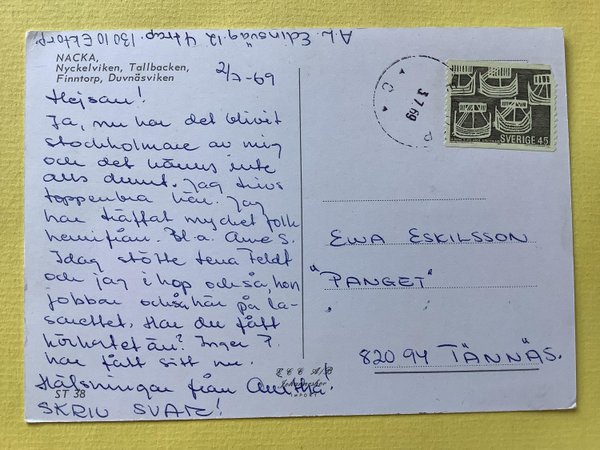 A.L. Edinsväg 12 4 trap. 130 10 Ektorp.
NACKA,
Nyckelviken, Tallbacken,
Finntorp, Duvnäsviken
2/7-69
Hejsan!
Ja, nu har det blivit
stockholmare av mig
och det känns inte
alls dumt. Jag trivs
toppenbra här. Jag
har träffat mycket folk
hemifrån. Bl.a. Arne S.
Idag stötte Lena Feldt
och jag i hop också, hon
jobbar också här på la-
sarettet. Har du fått
körkortet än? Inger P.
har fått sitt nu.
Hälsningar från
SKRIV SVAR!
ST 38
IMPORT
3.7.69
SVERIGE 45
EWA ESKILSSON
"PANGET"
820 94 TÄNNÄS.